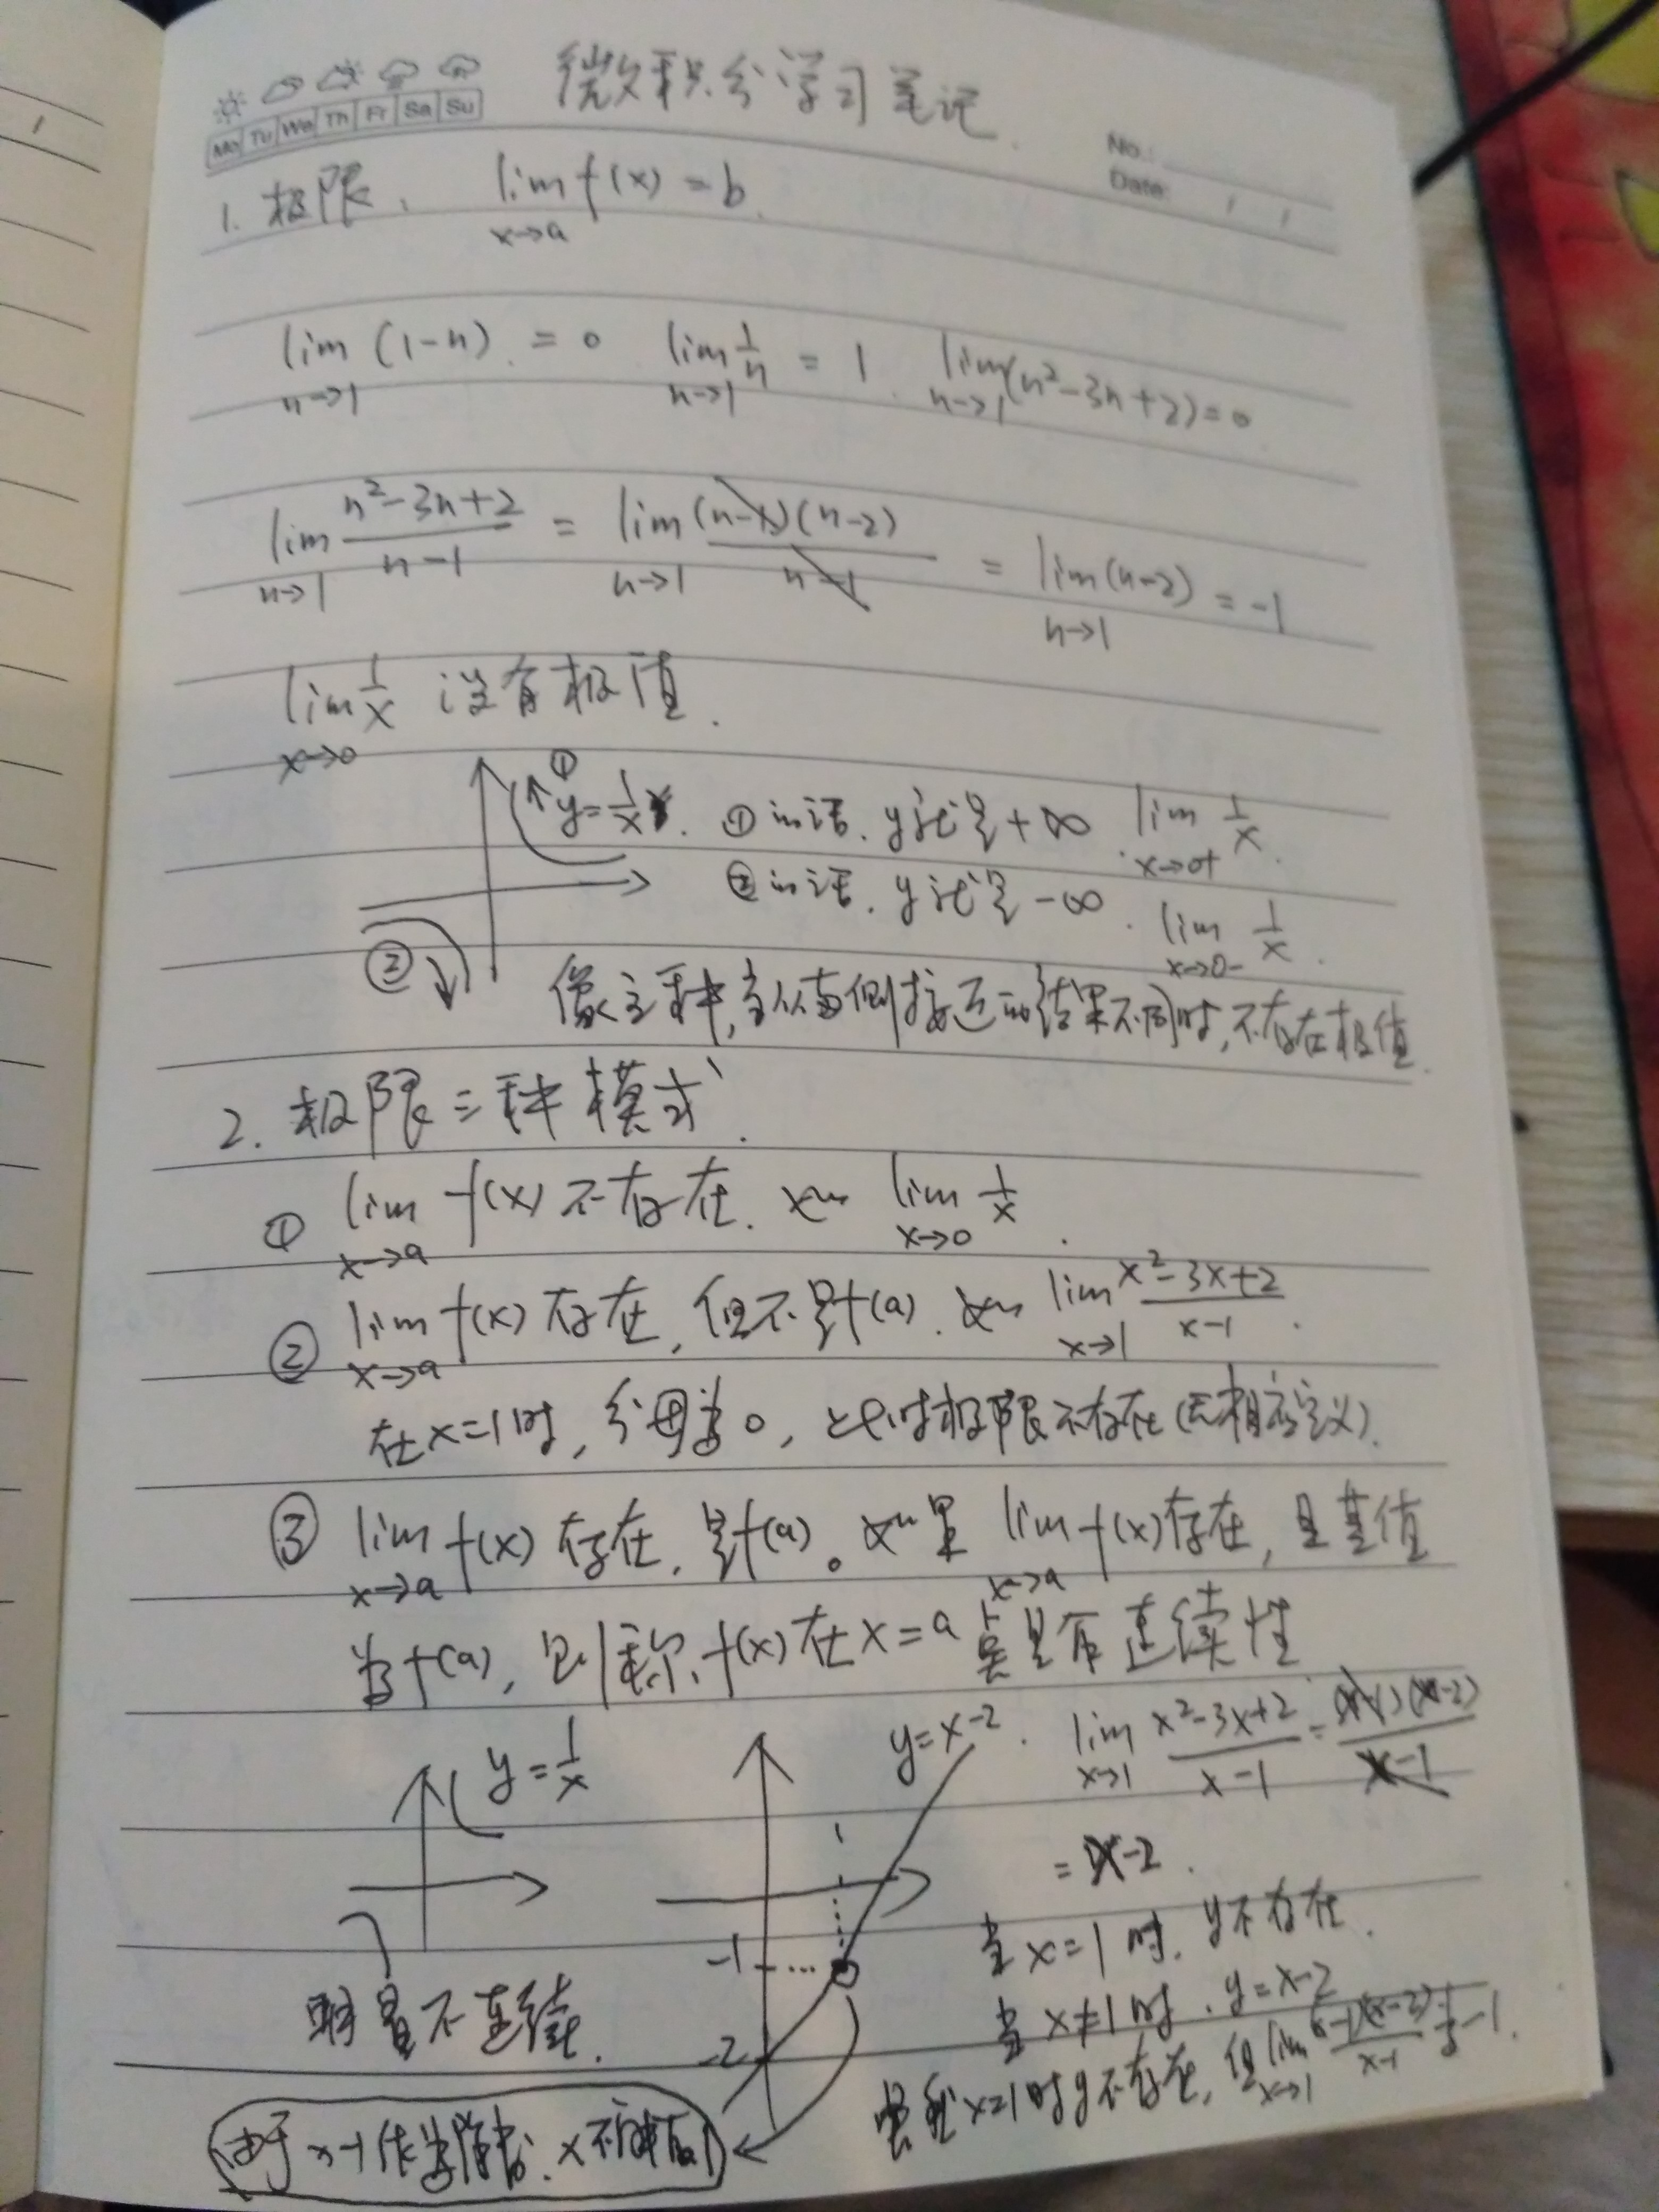 微积分学习笔记.
Mo Tu We Th Fr Sa Su
No.:
Date: / /
1. 极限. lim x→a f(x) = b.
lim n→1 (1-n) = 0 lim n→1 1/n = 1 lim n→1 (n²-3n+2)=0
lim n→1 (n²-3n+2)/(n-1) = lim n→1 (n-1)(n-2)/(n-1) = lim n→1 (n-2) = -1
lim x→0 1/x 没有极值.
① y=1/x. ①的话. y就是+∞ lim x→0+ 1/x.
②的话. y就是-∞. lim x→0- 1/x.
②
像这种,当从两侧接近的结果不同时,不存在极值.
2. 极限三种模式.
① lim x→a f(x) 不存在. 如 lim x→0 1/x.
② lim x→a f(x) 存在, 但不是f(a). 如 lim x→1 (x²-3x+2)/(x-1).
在x=1时, 分母为0, 此时极限不存在(无相应定义).
③ lim x→a f(x) 存在, 是f(a)。如果 lim x→a f(x)存在, 且其值
为f(a), 则称f(x)在x=a点具有连续性
y=1/x
y=x-2. lim x→1 (x²-3x+2)/(x-1) = (x-1)(x-2)/(x-1)
= x-2.
-1
-2
明显不连续.
当x=1时. y不存在.
当x≠1时. y=x-2
虽然x=1时y不存在, 但lim x→1 (x-1)(x-2)/(x-1) 为-1.
由于x-1作为除数. x不能取1